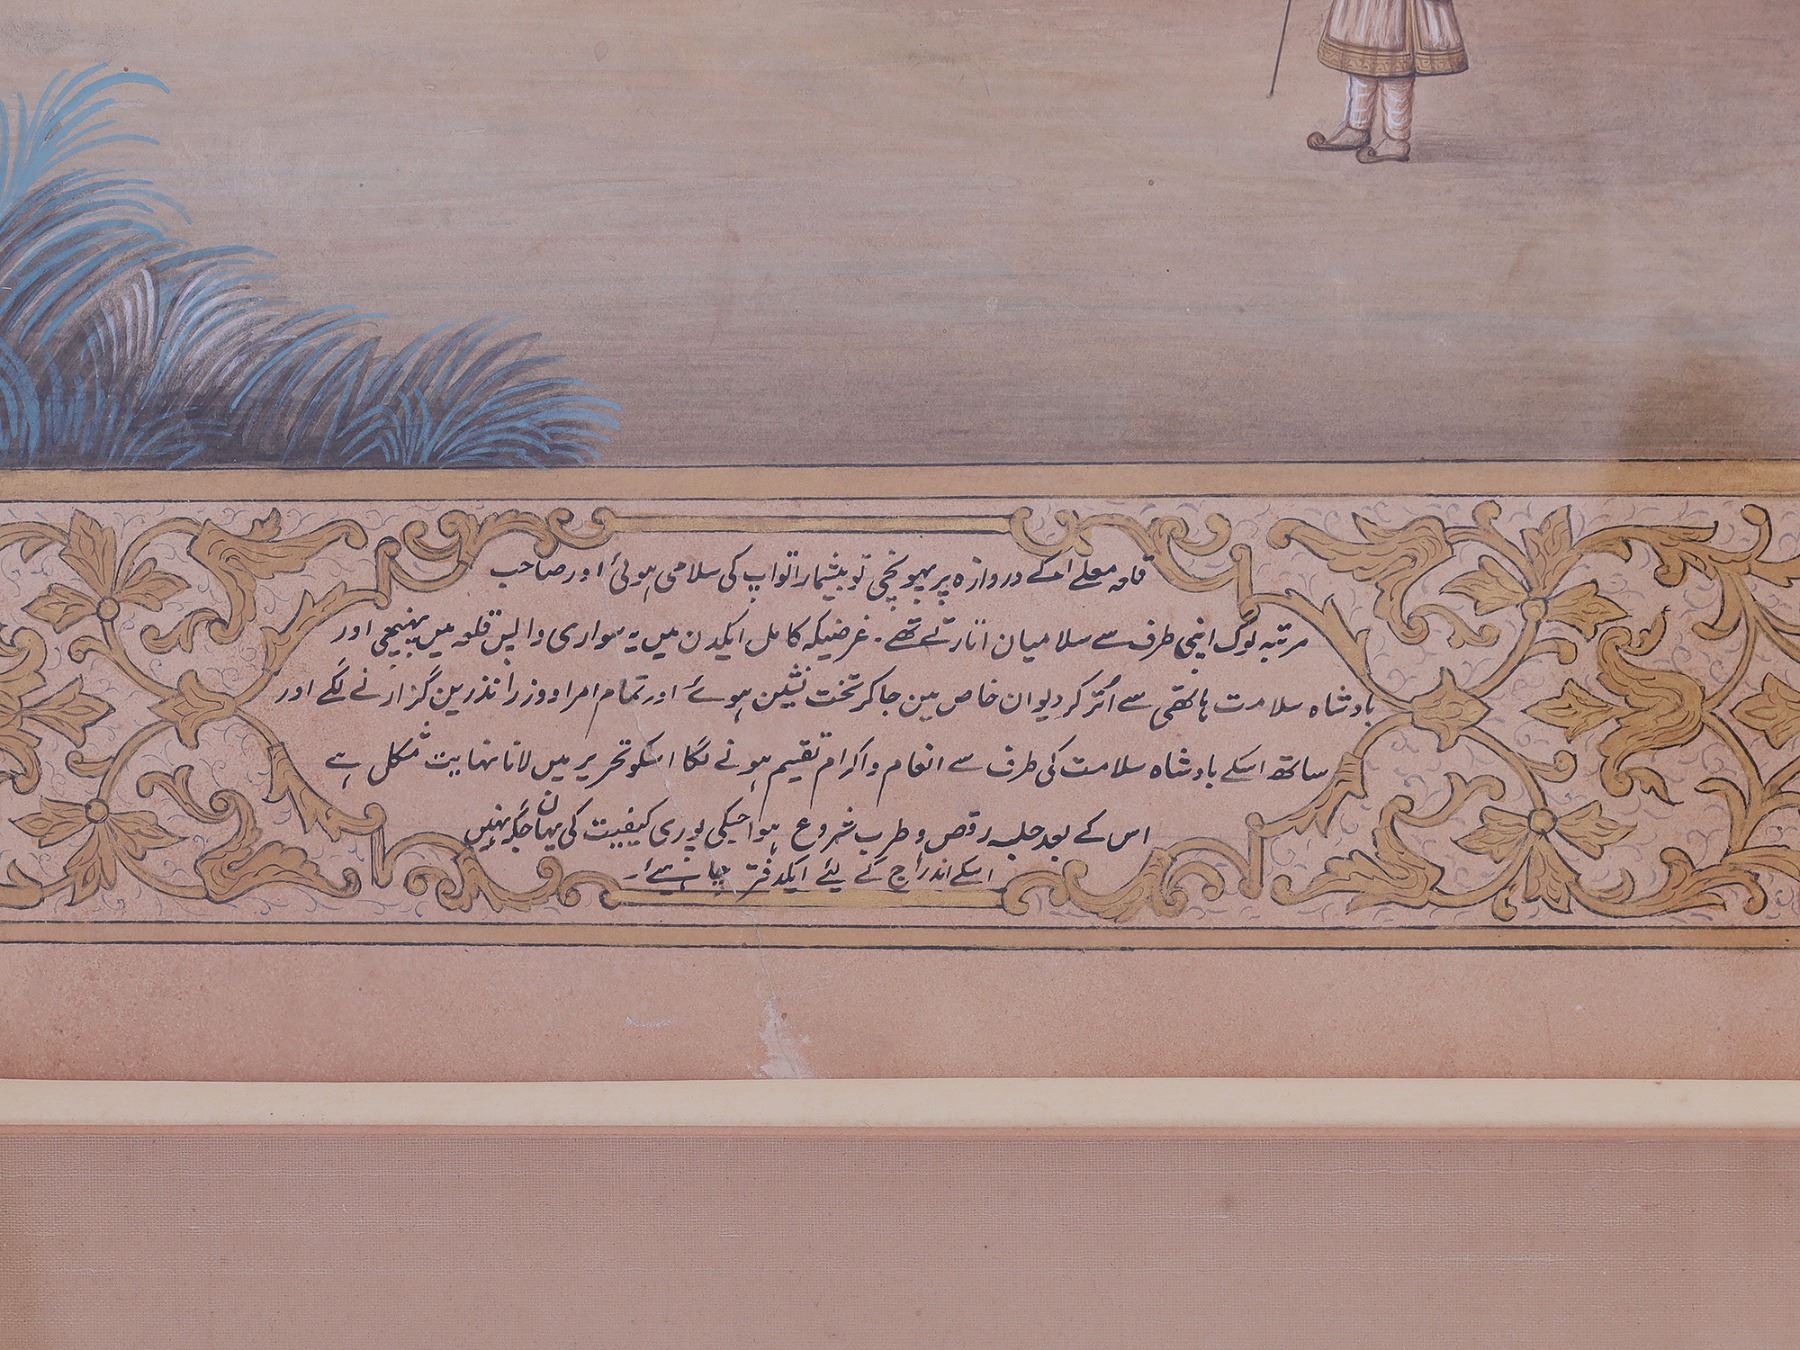 قلعہ معلے کے دروازہ پر پہونچی تو بیشمار اتواپ کی سلامی ہوئی اور صاحب
مرتبہ لوگ اپنی طرف سے سلامیان اتارتے تھے ۔ غرضیکہ کامل ایکدن میں یہ سواری واپس قلعہ میں پہنچی اور
بادشاہ سلامت ہاتھی سے اُتر کر دیوان خاص مین جا کر تخت نشین ہوئے اور تمام امرا و وزرا نذرین گزارنے لگے اور
ساتھ اسکے بادشاہ سلامت کی طرف سے انعام و اکرام تقیم ہونے لگا اسکو تحریر میں لانا نہایت مشکل ہے
اس کے بعد جلسہ رقص و طرب شروع ہوا جسکی پوری کیفیت کی یہان جگہ نہیں
اسکے اندراج کے لئے ایکدفتر چاہئے ۔